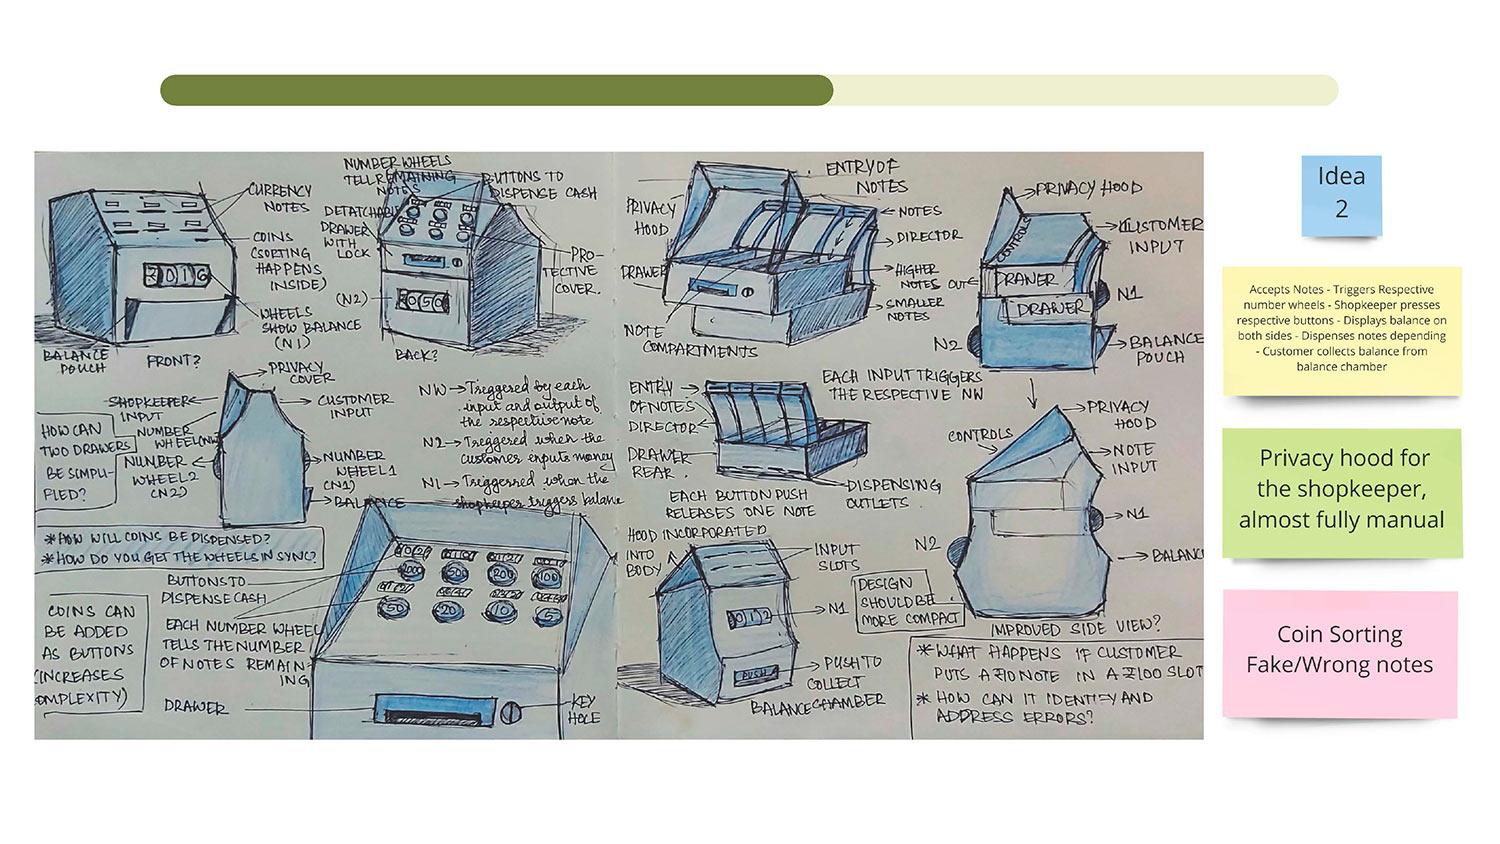 NUMBER WHEELS
TELL REMAINING
NOTES
BUTTONS TO
DISPENSE CASH
CURRENCY
NOTES
COINS
(SORTING
HAPPENS
INSIDE)
WHEELS
SHOW BALANCE
(N1)
BALANCE
POUCH
FRONT?
DETATCHABLE
DRAWER
WITH
LOCK
(N2)
050
PRO-
TECTIVE
COVER.
BACK?
PRIVACY
COVER
SHOPKEEPER
INPUT
CUSTOMER
INPUT
NUMBER
WHEEL(NW)
NUMBER
WHEEL2
(N2)
NUMBER
WHEEL1
(N1)
BALANCE
HOW CAN
TWO DRAWERS
BE SIMPLI-
FIED?
NW → Treggered by each
input and output of
the respective note
N2 → Treggered when the
customer enputs money
N1 → Treggerred when the
shopkeeper treggers balance
* HOW WILL COINS BE DISPENSED?
* HOW DO YOU GET THE WHEELS IN SYNC?
BUTTONS TO
DISPENSE CASH
COINS CAN
BE ADDED
AS BUTTONS
(INCREASES
COMPLEXITY)
EACH NUMBER WHEEL
TELLS THE NUMBER
OF NOTES REMAIN-
ING
500
200
100
50
20
10
5
DRAWER
KEY
HOLE
ENTRY OF
NOTES
PRIVACY
HOOD
NOTES
DIRECTOR
DRAWER
HIGHER
NOTES OUT
SMALLER
NOTES
NOTE
COMPARTMENTS
PRIVACY HOOD
CUSTOMER
INPUT
CONTROLS
DRAWER
DRAWER
N1
N2
BALANCE
POUCH
ENTRY
OF NOTES
DIRECTOR
DRAWER
REAR
EACH INPUT TRIGGERS
THE RESPECTIVE NW
DISPENSING
OUTLETS
EACH BUTTON PUSH
RELEASES ONE NOTE
PRIVACY
HOOD
CONTROLS
NOTE
INPUT
N1
N2
BALANC
IMPROVED SIDE VIEW?
HOOD INCORPORATED
INTO
BODY
INPUT
SLOTS
N1
0012
PUSH
PUSH TO
COLLECT
BALANCE CHAMBER
DESIGN
SHOULD BE
MORE COMPACT
* WHAT HAPPENS IF CUSTOMER
PUTS A ₹10 NOTE IN A ₹100 SLOT
* HOW CAN IT IDENTIFY AND
ADDRESS ERRORS?
Idea
2
Accepts Notes - Triggers Respective
number wheels - Shopkeeper presses
respective buttons - Displays balance on
both sides - Dispenses notes depending
- Customer collects balance from
balance chamber
Privacy hood for
the shopkeeper,
almost fully manual
Coin Sorting
Fake/Wrong notes